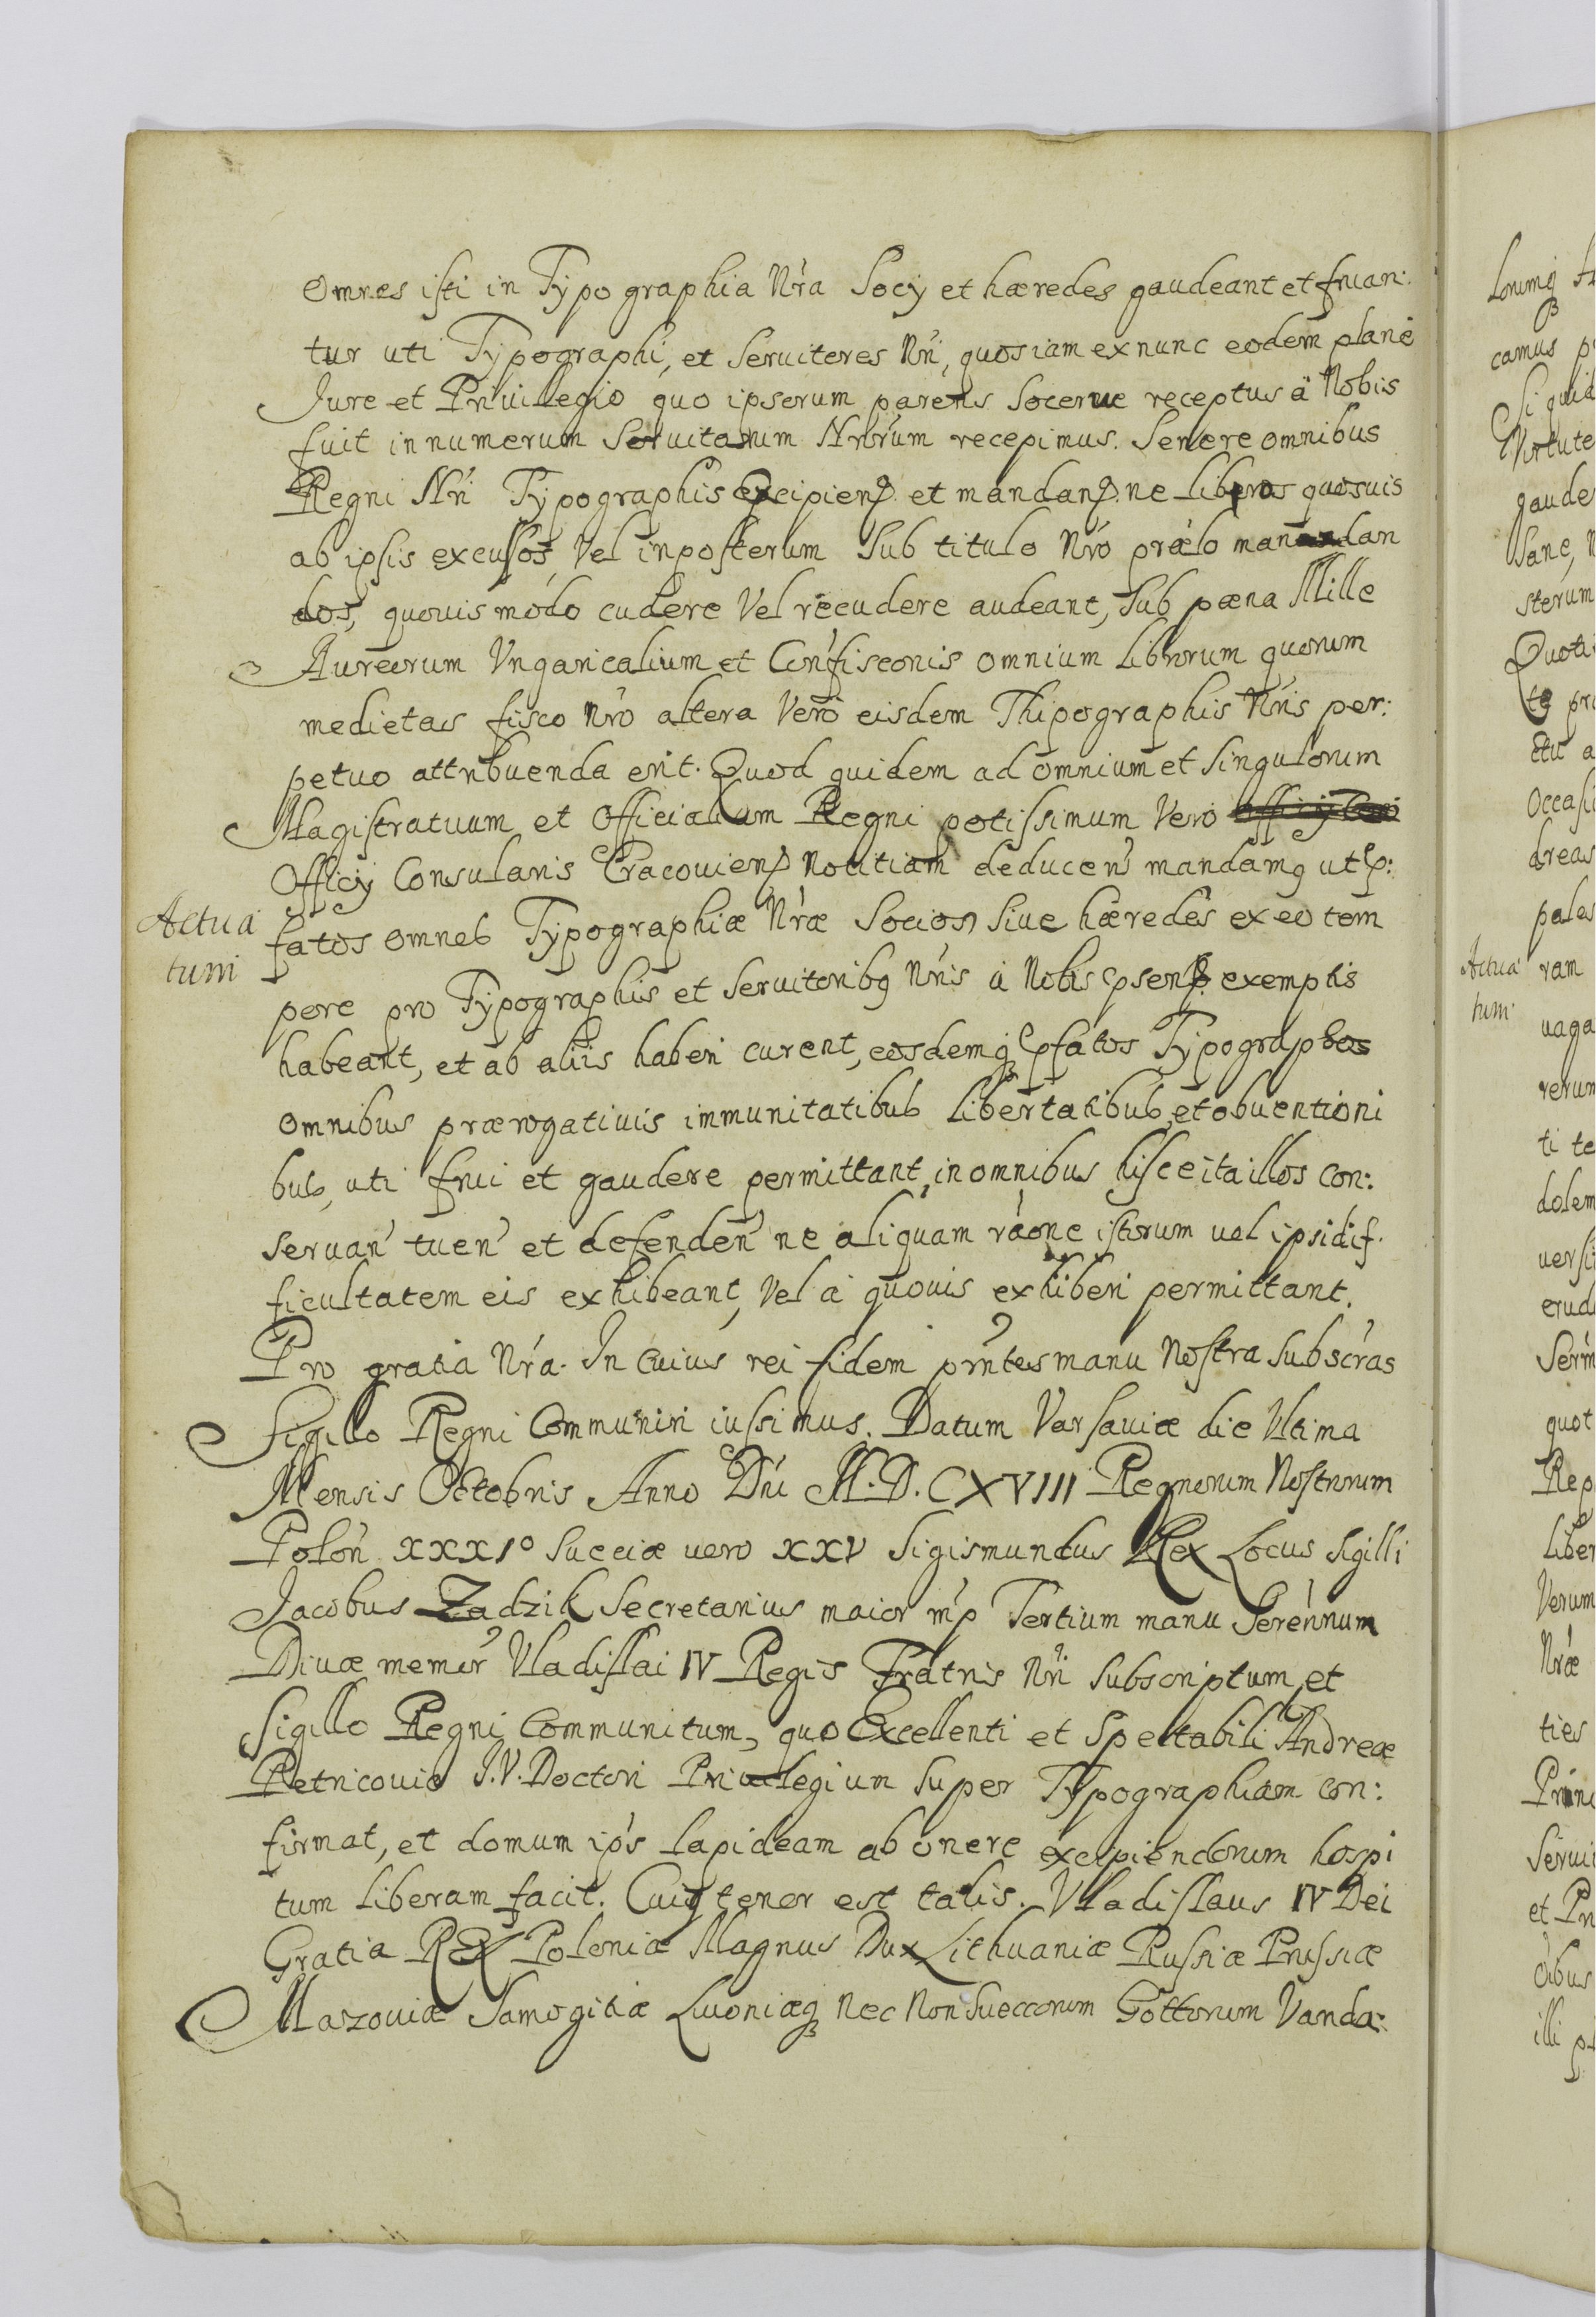 omnes isti in Typographia Nra Socÿ et hæredes gaudeant et fruan:
tur uti Typographi, et Seruitores Nri, quos iam ex nunc eodem planè
Jure et Priuillegio quo ipsorum parens Socerue receptus â Nobis
fuit in numerum Seruitorum Nrorum recepimus. Serio omnibus
Regni Nri Typographis et mandan. ne libros quosuis
ab ipsis excussos, vel inposterum Sub titulo Nro prælo mandan
dos, quouis modo cudere vel recudere audeant, Sub pæna Mille
Aureorum Vngaricalium et Confisconis omnium librorum quorum
medietas fisco Nro altera verò eisdem Thipographis Nris per:
petuo attribuenda erit. Quod quidem ad omnium et Singulorum
Magistratuum et Officialium Regni potissimum vero
Officÿ Consularis Cracouien. Notitiam deducen mandamq ut p:
fatos omnes Typographiæ Nræ Socios Siue hæredes ex eo tem
pore pro Typographis et Seruitoribq Nris à Nobis psen. exemptis
habeant, et ab aliis haberi curent, eosdemq pfatos Typographos
omnibus prærogatiuis immunitatibus libertatibus, et obuentioni
bus, uti frui et gaudere permittant, in omnibus hisce ita illos con:
seruan tuen et defenden ne aliquam râone istorum uel ipsi dif.
ficultatem eis exhibeant, vel à quouis exhiberi permittant.
Pro gratia Nra. In cuius rei fidem prntes manu Nostra Subscras
Sigillo Regni Communiri iussimus. Datum Varsauiæ die Vltima
Mensis Octobris Anno Dni M.D.CXVIII Regnorum Nostrorum
Polon XXXIº Sueciæ uero XXV Sigismundus Rex Locus Sigilli
Jacobus Zadzik Secretarius maior mp Tertium manu Serennum
Diuæ memor Vladislai IV Regis Fratris Nri Subscriptum, et
Sigillo Regni Communitum, quo Excellenti et Spectabili Andreæ
Petricouio J.V. Doctori Priuilegium Super Typographiam con:
firmat, et domum ips lapideam ab onere excipiendorum hospi
tum liberam facit. Cuiq tenor est talis. Vladislaus IV Dei
Gratia REX Poloniæ Magnus Dux Lithuaniæ Russiæ Prussiæ
Mazouiæ Samogitiæ Liuoniæq Nec Non Sueccorum Gottorum Vanda:
Actua
tum
lorumq
camus
Si quid
Virtute
gaude
Sane,
sterum
Quoti
te
etu a
occasi
dreas
pales
ram
uaga
rerum
ti te
dolem
uersi
erud
Serm
quot
Rep
liber
Verum
Nræ
ties
Princ
Serui
et Pr
oibus
illi
Actua
tum